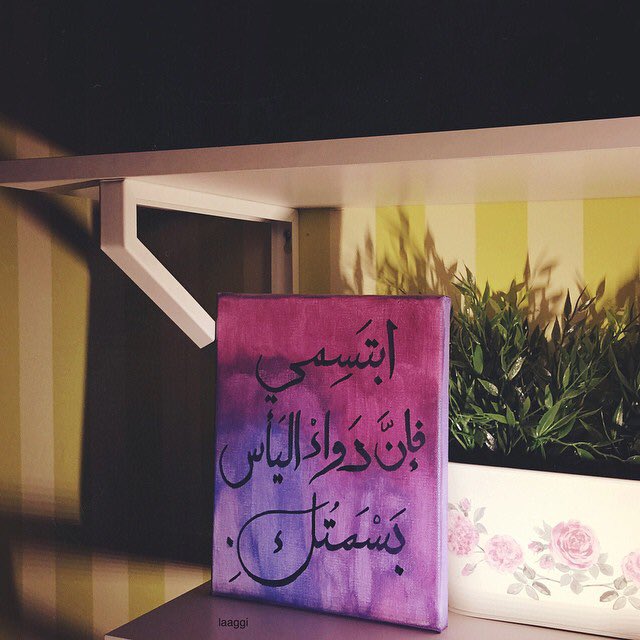 ابتَسِمي
فإنَّ دَواءْ اليَأس
بَسْمَتُكِ
laaggi